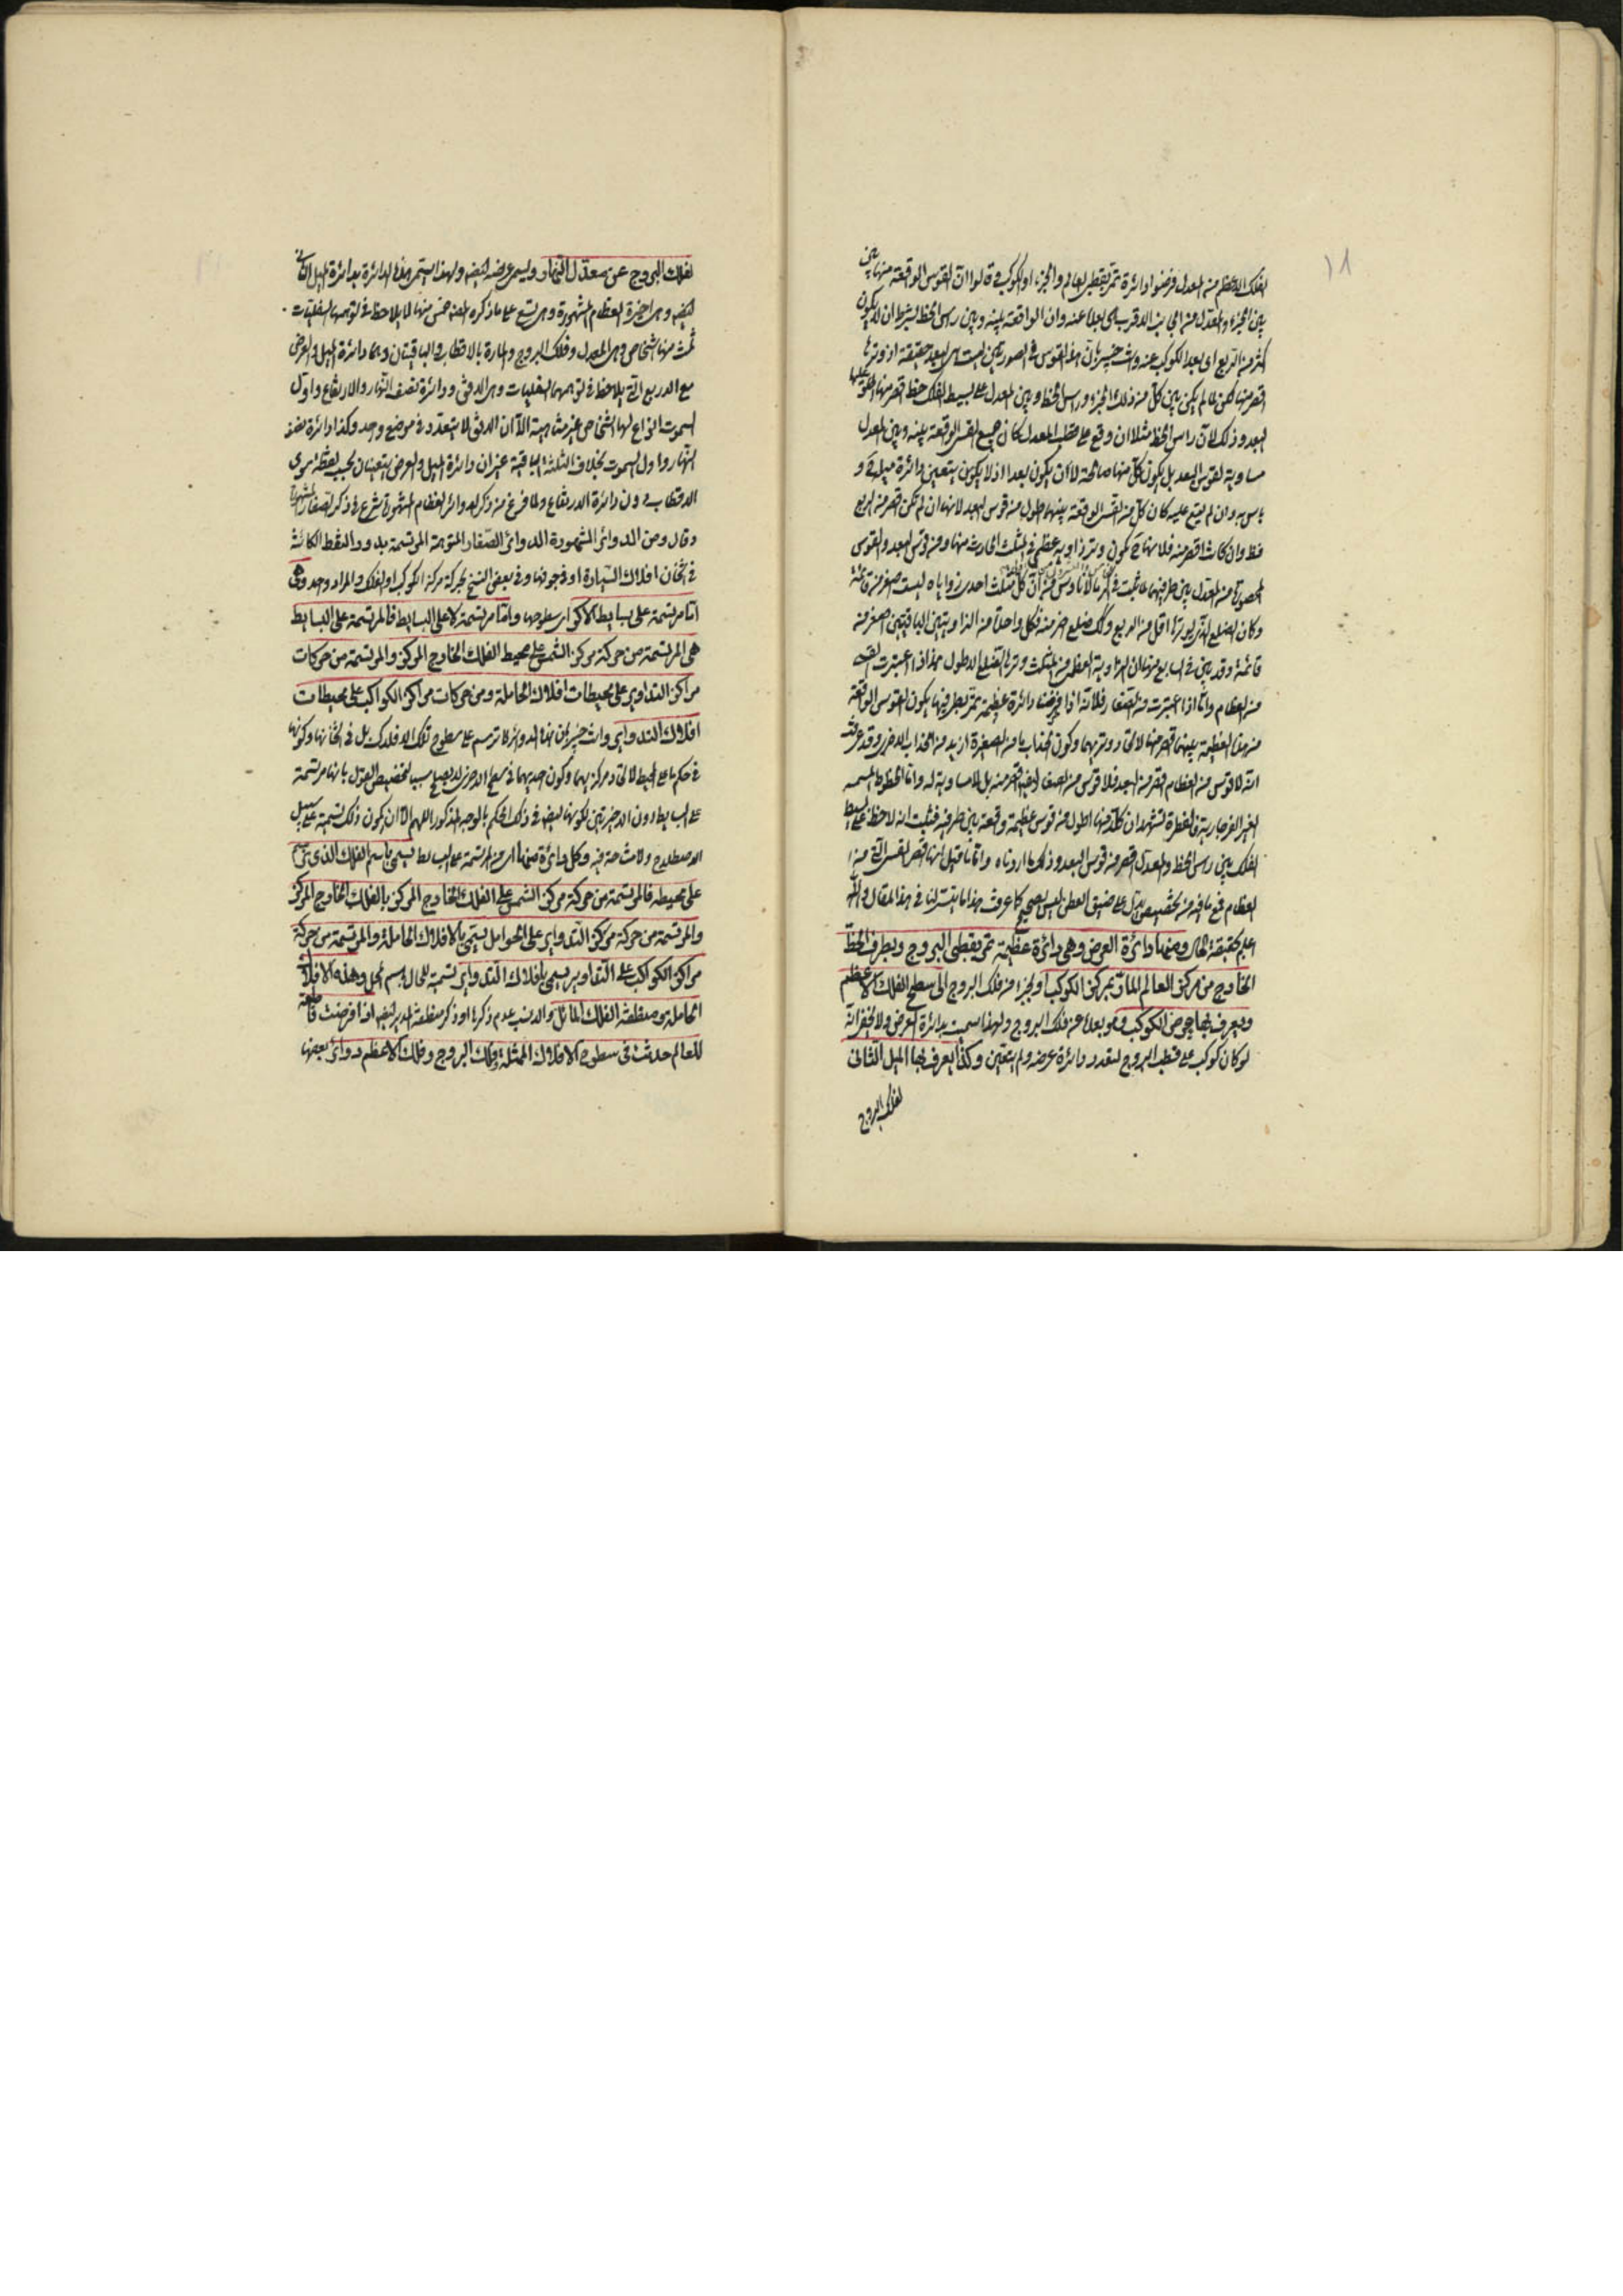 ١٨
الفلك الاعظم من المعدل فرضوا دائرة تمر بقطبى العالم والجزء او الكوكب وقالوا ان القوس الواقعة منها بين
بين الجزء والمعدل من الجانب الاقرب هى بعده عنه وان الواقعة بينه وبين راس الخط بشرط ان لا يكون
اكثر من الربع اى بعد الكوكب عنه وانت خبير بان هذه القوس فى الصورتين ليست هى البعد حقيقة
اقصر منها لكن لما لم يكن بين كل من ذلك الجزء وراس الخط وبين المعدل على بسيط الفلك خط اقصر منها
البعد وذلك لان راس الخط مثلا ان وقع على قطب المعدل كان جميع القسى الواقعة بينه وبين المعدل
مساوية لقوس البعد بل يكون كل منها صالحة لان يكون بعدا اذ لا يتعين دائرة ميله و
باس به وان لم يقع عليه كان كل من القسى الواقعة بينهما اطول من قوس البعد لانها ان لم تكن اقصر من الربع
فظ وان كانت اقصر منه فلانها تكون وتر زاوية عظمى فى المثلث الحادث منها ومن قوس البعد والقوس
المحصورة من المعدل بين طرفيهما لما ثبت فى اكر مانالاوس من ان كل مثلث احدى زواياه ليست اصغر من قائمة
وكان الضلع الذى يوترها اقل من الربع وكل ضلع اصغر منه فكل واحدة من الزاويتين الباقيتين اصغر من
قائمة وقد بين فى السابع منها ان الزاوية العظمى من المثلث وترها الضلع الاطول هذا اذا اعتبرت القسى
من العظام واما اذا اعتبرت من الصغار فلانه اذا فرضنا دائرة عظيمة تمر بطرفيها يكون القوس الواقعة
من هذه العظيمة بينهما اقصر منها لاتحاد وتريهما وكون انحداب ما من الصغيرة ازيد من انحداب الاخرى وقد عرفت
انه لا قوس من العظام اقصر من البعد فلا قوس من الصغار ايضا اقصر منه بل ولا مساوية له واما الخطوط المسماة
الغير الفرجارية فالفطرة تشهد ان كلا منها اطول من قوس عظيمة وقعت بين طرفيه فثبت انه لا خط على بسيط
الفلك بين راس الخط والمعدل اقصر من قوس البعد وذلك ما اردناه واما ما قيل انها اقصر القسى التى من
العظام فمع ما فيه من تخصيص يدل على ضيق العطن ليس بصحيح كما عرفت هذا ما تيسر لنا فى هذا المقال والله
اعلم بحقيقة الحال ومنها دائرة العرض وهى دائرة عظيمة تمر بقطبى البروج وبطرف الخط
الخارج من مركز العالم المار بمركز الكوكب او بجزء من فلك البروج الى سطح الفلك الاعظم
ويعرف بها عرض الكوكب وهو بعده عن فلك البروج ولهذا سميت بدائرة العرض ولا يخفى انه
لو كان كوكب على قطب البروج لتعدد دائرة عرضه ولم يتعين وكذا يعرف بها الميل الثانى
لفلك البروج
لفلك البروج عن معدل النهار ويسمى عرضه ايضا ولهذا يسمى هذه الدائرة بدائرة الميل الثانى
ايضا وهى اخيرة العظام المشهورة وهى تسع على ما ذكره المصنف خمس منها لا يلاحظ فى توهمها السفليات
ثلث منها اشخاص وهى المعدل وفلك البروج والمارة بالاقطاب والباقيتان وهما دائرة الميل والعرض
مع الاربع التى يلاحظ فى توهمها السفليات وهى الافق ودائرة نصف النهار والارتفاع واول
السموت انواع لها اشخاص غير متناهية الا ان الافق لا يتعدد فى موضع واحد وكذا دائرة نصف
النهار واول السموت بخلاف الثلثة الباقية غير ان دائرة الميل والعرض يتعينان بحسب نقطة سوى
الاقطاب دون دائرة الارتفاع ولما فرغ من ذكر الدوائر العظام المشهورة شرع فى ذكر الصغار المشهورة
وقال ومن الدوائر المشهورة الدوائر الصغار المتوهمة المرتسمة بدور النقط الكائنة
فى اثخان افلاك السيارة او فى جوفها وفى بعض النسخ بحركة مركز الكوكب او الفلك والمراد واحد وهى
اما مرتسمة على بسايط الاكر اى سطوحها واما مرتسمة لا على البسايط فالمرتسمة على البسايط
هى المرتسمة من حركة مركز الشمس على محيط الفلك الخارج المركز والمرتسمة من حركات
مراكز التداوير على محيطات افلاك الحاملة ومن حركات مراكز الكواكب على محيطات
افلاك التداوير وانت خبير بان هذه الدوائر لا ترسم على سطوح تلك الافلاك بل فى اثخانها وكونها
فى حكم ما على المحيط لاتحاد مركزيهما وكون احديهما فى سطح الاخرى لا يصلح سببا لتخصيص القول بانها مرتسمة
على البسايط دون الاخيرتين لكونها ايضا فى ذلك الحكم بالوجه المذكور اللهم الا ان يكون ذلك تسمية على سبيل
الاصطلاح ولا مشاحة فيه وكل دائرة منها اى من المرتسمة على البسايط يسمى باسم الفلك الذى ترسم
على محيطه فالمرتسمة من حركة مركز الشمس على الفلك الخارج المركز بالفلك الخارج المركز
والمرتسمة من حركة مركز التداوير على الحوامل يسمى بالافلاك الحاملة والمرتسمة من حركة
مراكز الكواكب على التداوير يسمى بافلاك التداوير تسمية للحال باسم المحل وهذه الافلاك
الحاملة ومنطقة الفلك المائل والانسب عدم ذكرها او ذكر منطقة المدير ايضا اذا فرضت قاطعة
للعالم حدثت فى سطوح الافلاك الممثلة وفلك البروج وفلك الاعظم دوائر بعضها